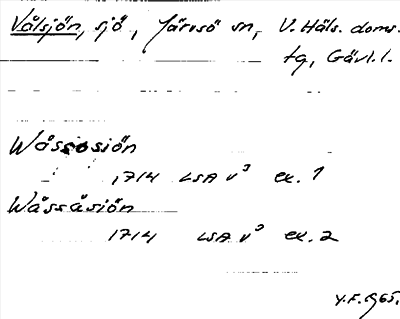 Vålsjön, sjö, Järvsö sn, V. Häls. doms.
tg, Gävl.l.
Wåssosiön
1714 LSA V³ ex. 1
Wåssåsiön
1714 LSA V³ ex. 2
Y.F. 1965.